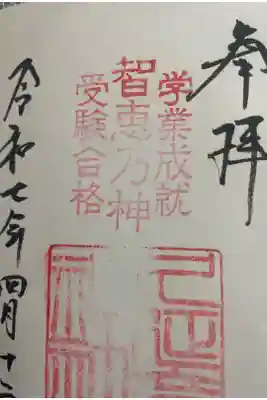 奉拝
学業成就
智恵乃神
受験合格
令和七年四月十